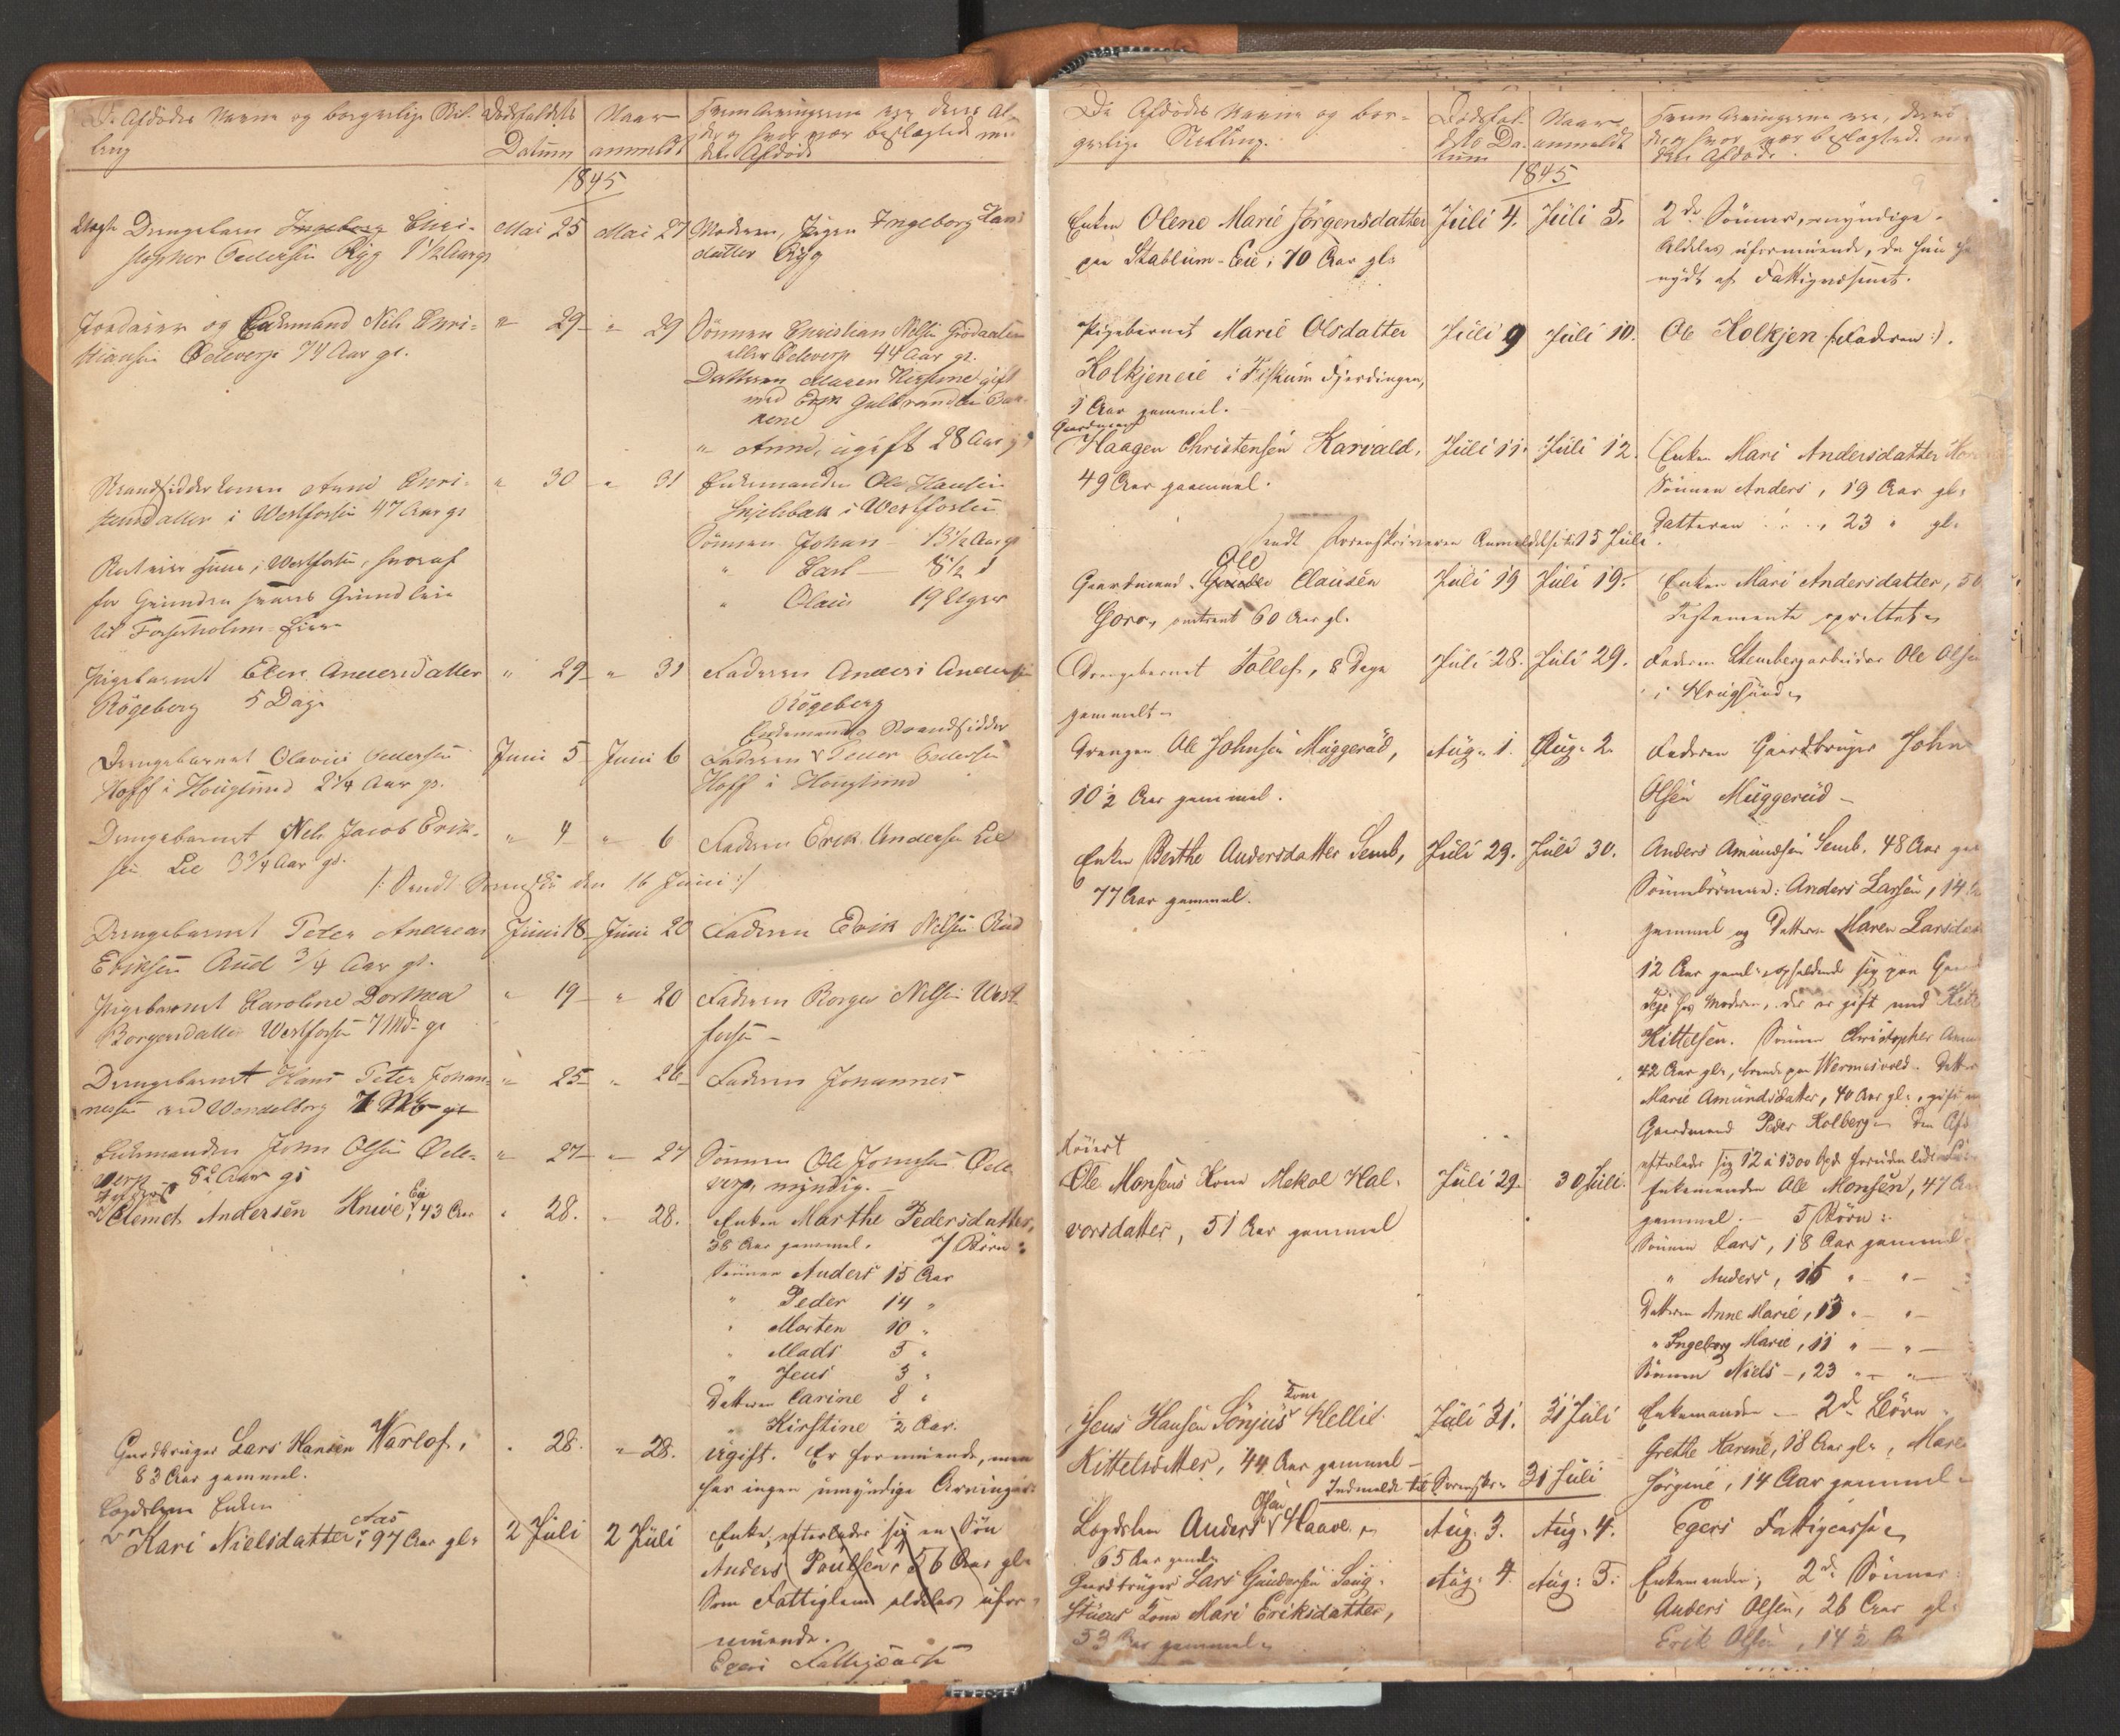 De Afdødes Navne og borgerlige Stil-
ling
Dødsfaldets
Datum
Naar
anmeldt
Hvem Arvingerne ere, deres Al-
der og hvor nær beslægtede med
den Afdøde
1845
Drengebarn Ingeborg Chri-
stopher Pedersen Ryg 1½ Aar gl
Mai 25
Mai 27
Moderen, Pigen Ingeborg Hans
datter Ryg
og Enkemand Nils Chri-
stiansen Ødeverp 74 Aar gl.
" 29
" 29
Sønnen Christian Nilsen
eller Ødeverp 44 Aar gl.
Datteren Maren Kirstine gift
med Erik Gulbrandsen Bak-
kene
" Anne, ugift 28 Aar gl
Strandsidderkonen Anne Chri-
stensdatter i Westfossen 47 Aar gl
" 30
" 31
Enkemanden Ole Hansen
i Westfossen
Sønnen Johan 13½ Aar gl
" Carl 8½ "
" Olaus 19 Uger
i Westfossen, hvoraf
for Grunden svares Grundleie
til Fossesholms Eier
Pigebarnet Elen Andersdatter
Røgeberg 5 Dage
" 29
" 31
Faderen Anders Andersen
Røgeberg
Drengebarnet Olavus Pedersen
Hoff i Hougsund 2¼ Aar gl.
Juni 5
Juni 6
Strandsidder
Faderen Peder Pedersen
Hoff i Hougsund
Drengebarnet Nils Jacob Erik-
sen Lie 3¾ Aar gl.
" 4
" 6
Faderen Erik Andersen Lie
/: Sendt Sorenskr den 16 Juni :/
Drengebarnet Peter Andreas
Eriksen Rud ¾ Aar gl.
Juni 18
Juni 20
Faderen Erik Nilsen Rud
Pigebarnet Karoline Dorthea
Borgersdatter Westfossen 7 Md gl
" 19
" 20
Faderen Borger Nilsen West-
fossen
Drengebarnet Hans Peter Johan-
nesen ved Wendelborg
" 25
" 26
Faderen Johannes
Enkemanden John Olsen Øde-
verp 82 Aar gl
" 27
" 27
Sønnen Ole Johnsen Øde-
verp, myndig.
Clemet Andersen Knive Eie, 43 Aar
" 28.
" 28.
Enken Marthe Pedersdatter,
38 Aar gammel. 7 Børn:
Sønnen Anders 15 Aar
" Peder 14 "
" Morten 10 "
" Mads 5 "
" Jens 3 "
Datteren Carine 8 "
" Kirstine ½ Aar.
Gaardbruger Lars Hansen Warlof,
83 Aar gammel.
" 28.
" 28.
Ugift. Er formuende, men
har ingen umyndige Arvinger.
Lægdslem Enken
Kari Nielsdatter Aas, 97 Aar gl.
2 Juli
2 Juli
Enke, efterlader sig en Søn
Anders Poulsen, 56 Aar gl.
Som Fattiglem aldeles ufor-
muende.
Egers Fattigcasse
De Afdødes Navne og bor-
gerlige Stilling.
Dødsfal-
dets Da-
tum
Naar
anmeldt
Hvem Arvingerne ere, deres
Alder og hvor nær beslægtede med
den Afdøde.
1845
Enken Olene Marie Jörgensdatter
paa Stablum-Eie, 70 Aar gl.
Juli 4.
Juli 5.
2de Sønner, myndige.
Aldeles uformuende, da hun har
nydt af Fattigvæsenet.
Pigebarnet Marie Olsdatter
Kolkjeneie i Fiskum Fjerdingen,
1 Aar gammel.
Juli 9
Juli 10.
Ole Kolkjen (:Faderen:).
Gaardmand
Haagen Christensen Karvald,
49 Aar gammel.
Juli 11.
Juli 12.
Enken Mari Andersdatter Kar
Sønnen Anders, 19 Aar gl.
Datteren . . . , 23 " gl.
Sendt Sorenskriveren Anmeldelse til 15 Juli.
Ole
Gaardmand Clausen
Goro, omtrent 60 Aar gl.
Juli 19
Juli 19.
Enken Mari Andersdatter, 50
Testamente oprettet.
Drengebarnet Tollef, 8 Dage
gammelt.
Juli 28.
Juli 29.
Faderen Ole Olsen
i Hougsund
Drengen Ole Johnsen Muggerud,
10½ Aar gammel.
Aug. 1.
Aug. 2.
Faderen Gaardbruger John
Olsen Muggerud
Enken Berthe Andersdatter Semb,
77 Aar gammel.
Juli 29.
Juli 30.
Anders Amundsen Semb. 48 Aar gl
Sønnebørnene: Anders Larsen, 14
gammel og Datteren Maren Larsdatter
12 Aar gaml. opholdende sig paa
hos Moderen, der er gift med
Kittelsen. Sønnen Christopher Amun
42 Aar gl., boende paa Wermesvold. Datter
Marie Amundsdatter, 40 Aar gl., gift med
Gaardmand Peder Kolberg. Den Afd
efterlader sig 12 à 1300
Ole Monsens Kone Mekol Hal-
vorsdatter, 51 Aar gammel
Juli 29.
30 Juli.
Enkemanden Ole Monsen, 47 Aar
gammel. 5 Børn:
Sønnen Lars, 18 Aar gammel
" Anders, 16 " "
Datteren Anne Marie, 13 " "
" Ingeborg Marie, 11 " "
Sønnen Niels, 23 " "
Jens Hansen Sönjus Kone Hellie
Kittelsdatter, 44 Aar gammel
Juli 31.
31 Juli
Enkemanden 2de Børn
Grethe Karine, 18 Aar gl., Maren
Jørgine, 14 Aar gammel
Indmeldt til Sorenskr. 31 Juli
Lægdslem Anders Olsen Haave.
65 Aar gaml.
Aug. 3.
Aug. 4.
Egers Fattigcasse
Gaardbruger Lars Gundersen Saug-
stuens Kone Mari Eriksdatter,
53 Aar gammel
Aug: 4
Aug: 5:
Enkemanden; 2de Sønner:
Anders Olsen, 26 Aar gl.
Erik Olsen, 14½ A